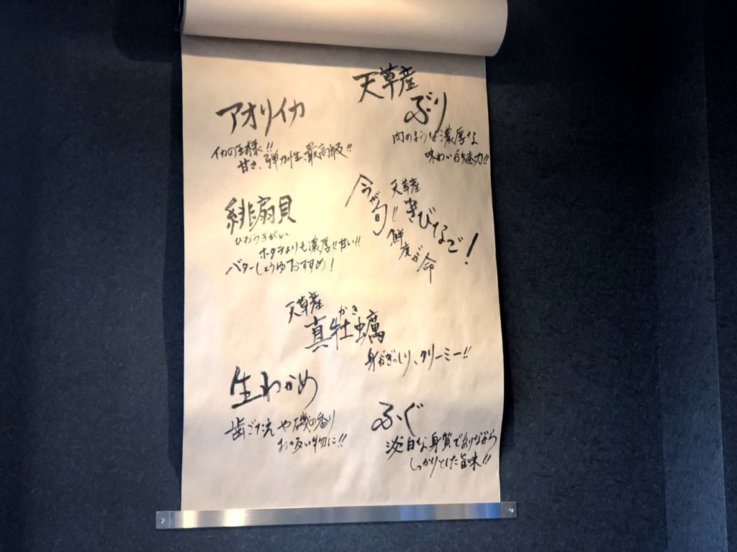 天草産
ぶり
肉のような濃厚な
味わいが魅力!!
アオリイカ
イカの王様!!
甘さ、弾力性、最高級!!
今が旬!!
天草産
きびなご!
鮮度が命
緋扇貝
ひおうぎがい
ホタテよりも濃厚!!甘い!!
バターしょうゆおすすめ!
天草産
かき
真牡蠣
身がぎっしり、クリーミー!!
生わかめ
歯ごたえや磯の香り
お吸い物に!!
ふぐ
淡白な身質でありながら
しっかりとした旨味!!